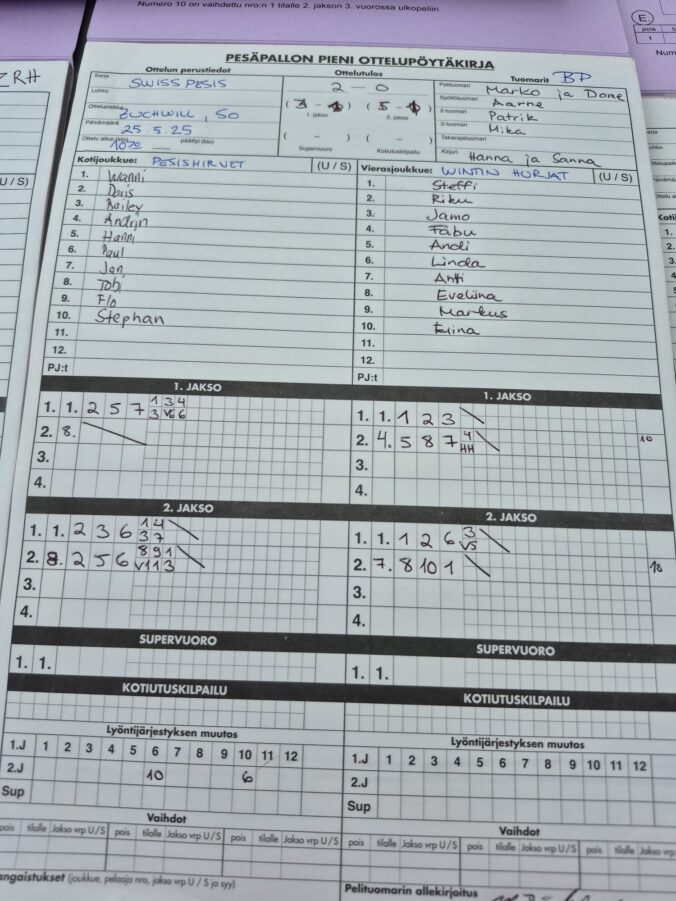 Numero 10 on vaihdettu nro:n 1 tilalle 2. jakson 3. vuorossa ulkopeliin
E.
pois
1
Num
ZRH
PESÄPALLON PIENI OTTELUPÖYTÄKIRJA
Ottelun perustiedot
Ottelutulos
Tuomarit BP
Sarja SWISS PESIS
Lohko
Ottelupaikka ZUCHWIL, SO
Päivämäärä 25.5.25
Ottelu alkoi (klo) päättyi (klo)
2 - 0
1. jakso
2. jakso
( - )
( - )
Supervuoro
Kotiutuskilpailu
Pelituomari Marko ja Done
Syöttötuomari Aarne
2-tuomari Patrik
3-tuomari Mika
Takarajatuomari
Kirjuri Hanna ja Sanna
Kotijoukkue: PESISHIRVET (U / S)
1. Wanni
2. Doris
3. Bailey
4. Andrin
5. Hanni
6. Paul
7. Jan
8. Tobi
9. Flo
10. Stephan
11.
12.
PJ:t
Vierasjoukkue: WINTIN HURJAT (U / S)
1. Steffi
2. Riku
3. Jamo
4. Fäbu
5. Andi
6. Linda
7. Anti
8. Eveliina
9. Markus
10. Elina
11.
12.
PJ:t
1. JAKSO
1. 1. 2 5 7 1 3 4
3 V5 6
2. 8.
3.
4.
1. JAKSO
1. 1. 1 2 3
2. 4. 5 8 7 4
HH
10
3.
4.
2. JAKSO
1. 1. 2 3 6 1 4
3 7
2. 8. 2 5 6 8 9 1
V1 1 3
3.
4.
2. JAKSO
1. 1. 1 2 6 3
V5
2. 7. 8 10 1
10
3.
4.
SUPERVUORO
1. 1.
SUPERVUORO
1. 1.
KOTIUTUSKILPAILU
KOTIUTUSKILPAILU
Lyöntijärjestyksen muutos
1.J 1 2 3 4 5 6 7 8 9 10 11 12
2.J 10 6
Sup
Lyöntijärjestyksen muutos
1.J 1 2 3 4 5 6 7 8 9 10 11 12
2.J
Sup
Vaihdot
pois tilalle Jakso vrp U / S pois tilalle Jakso vrp U / S pois tilalle Jakso vrp U / S
Vaihdot
pois tilalle Jakso vrp U / S pois tilalle Jakso vrp U / S pois tilalle Jakso vrp
angaistukset (joukkue, pelaaja nro, jakso vrp U / S ja syy)
Pelituomarin allekirjoitus